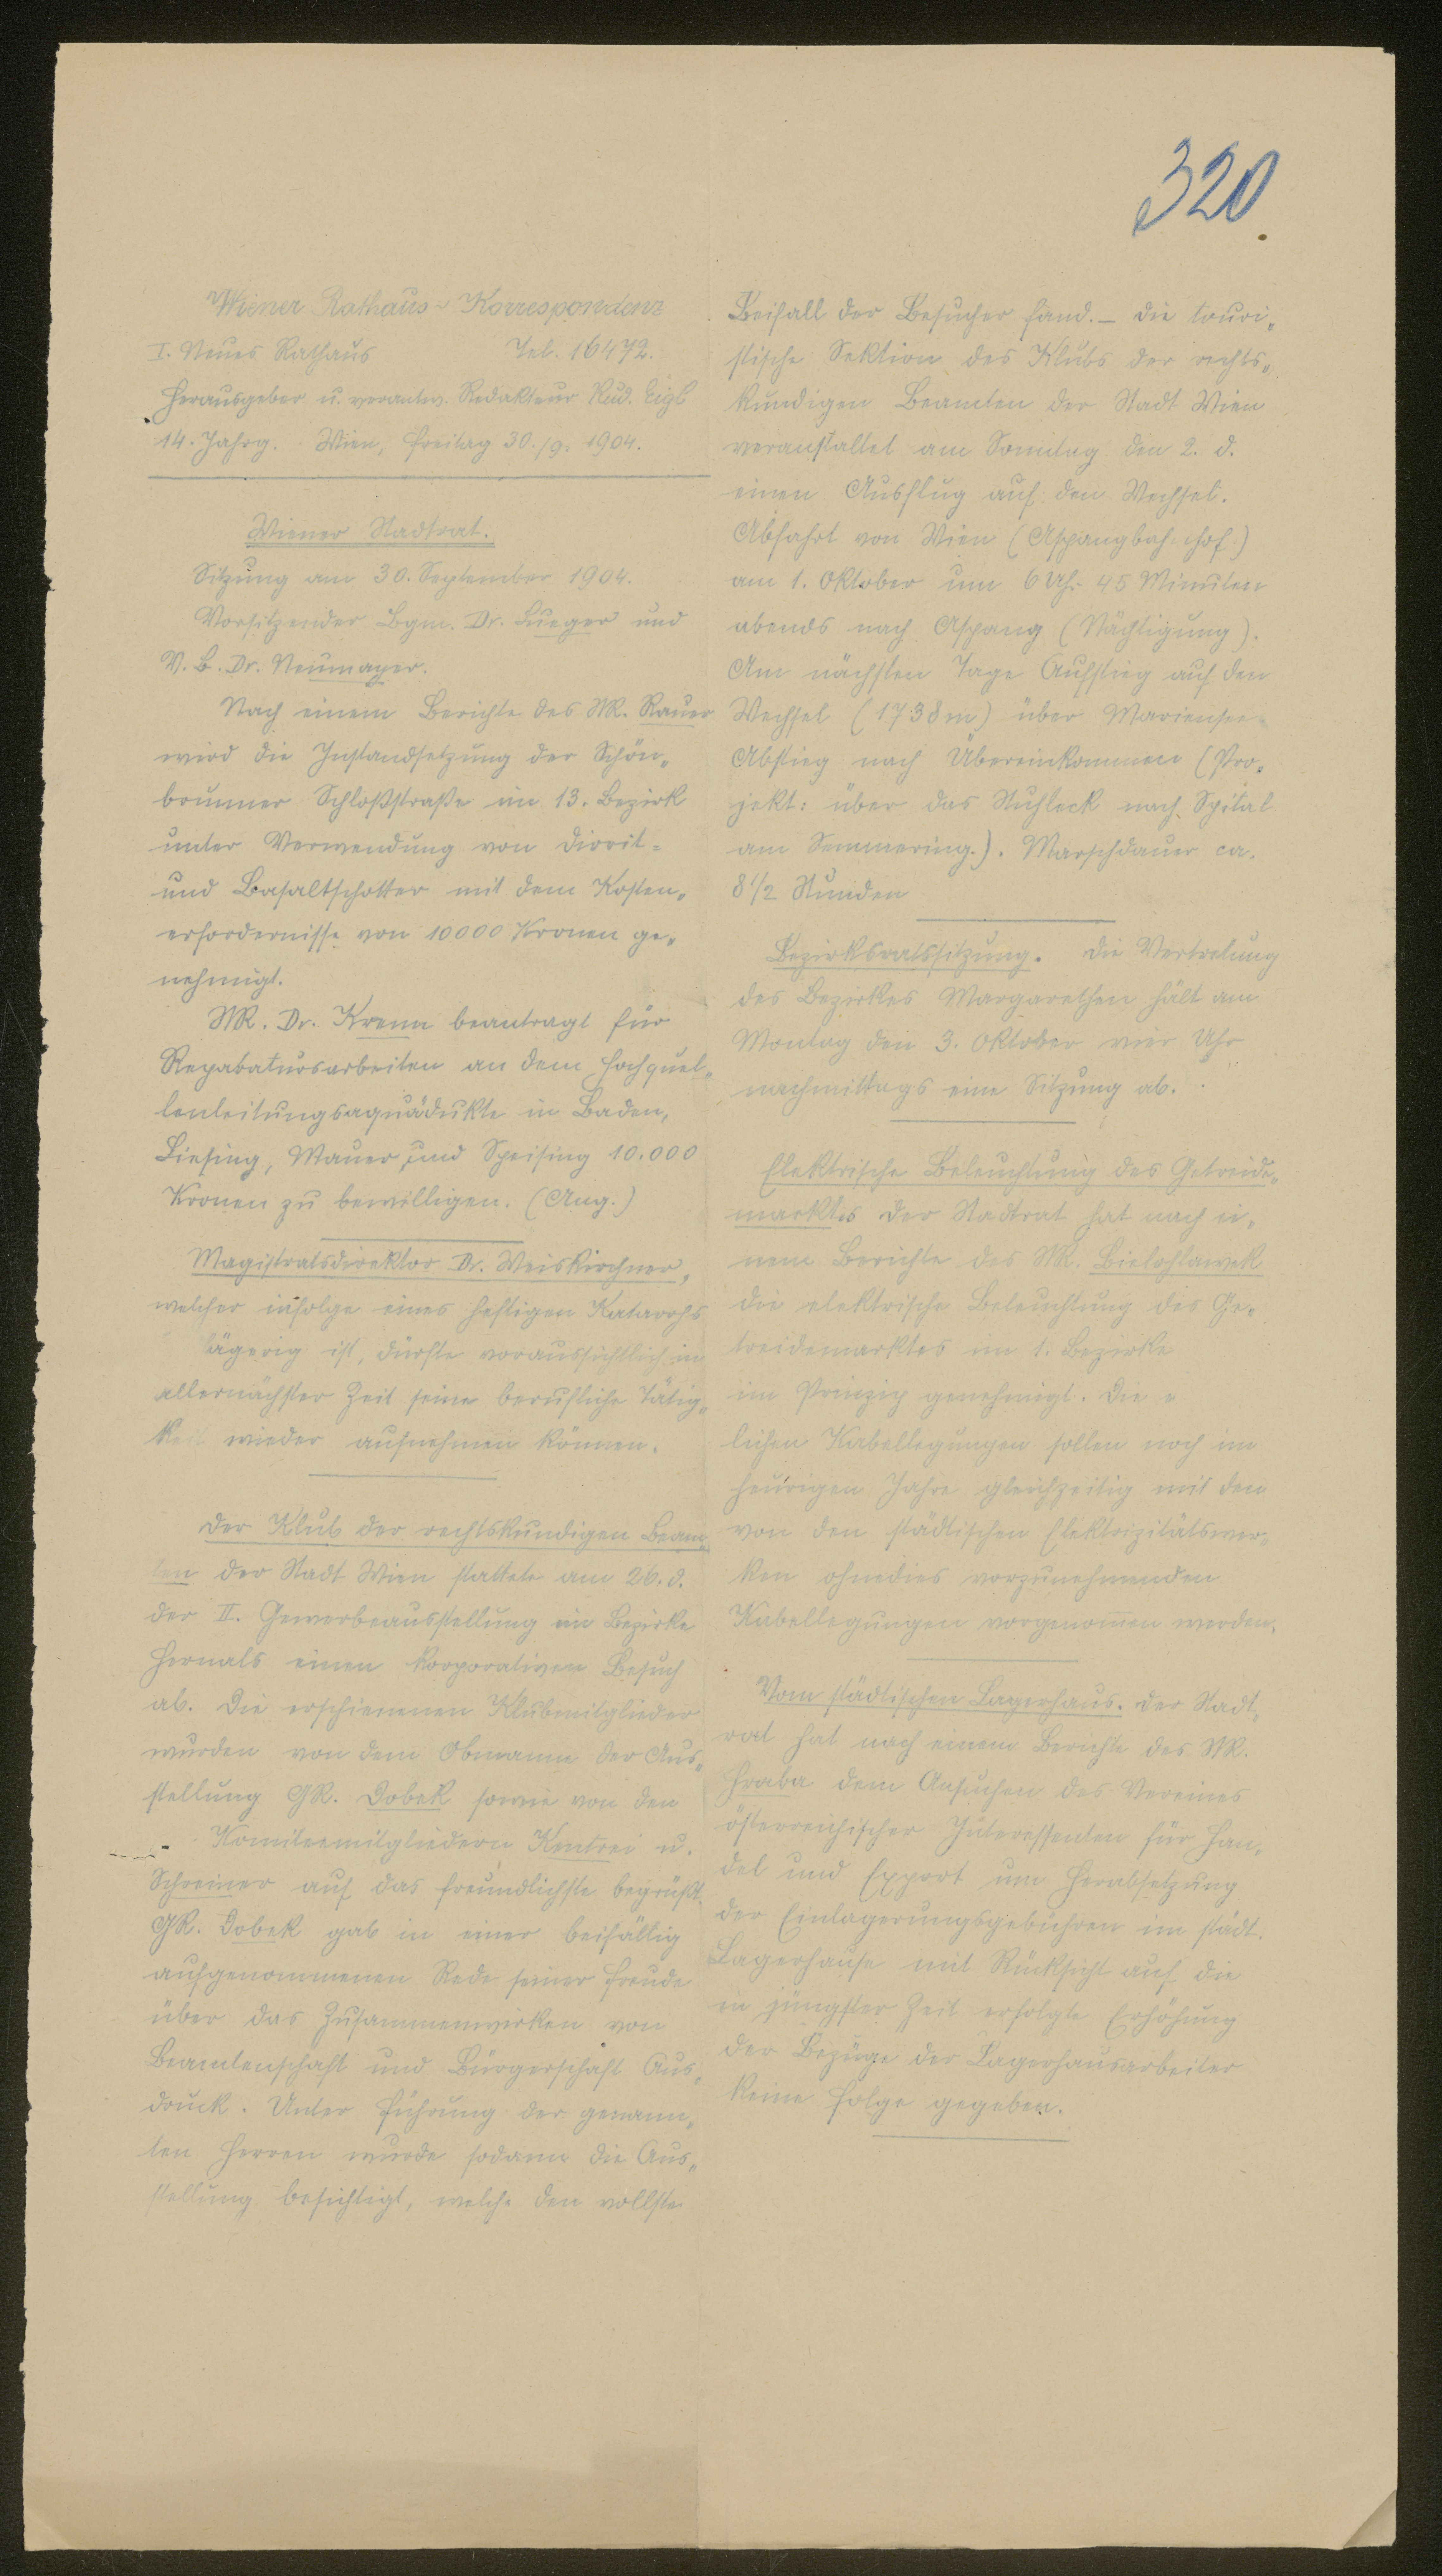 320.
Wiener Rathaus-Korrespondenz
I. Neues Rathaus Tel. 16472.
Herausgeber u. verantw. Redakteur Rud. Eigl
14. Jahrg. Wien, Freitag 30./9. 1904.
Wiener Stadtrat.
Sitzung am 30. September 1904.
Vorsitzender Bgm. Dr. Lueger und
V. B. Dr. Neumayer.
Nach einem Berichte des StR. Rauer
wird die Instandsetzung der Schön-
brunner Schloßstraße im 13. Bezirk
unter Verwendung von Diorit-
und Basaltschotter mit dem Kosten-
erfordernisse von 10000 Kronen ge-
nehmigt.
StR. Dr. Krenn beantragt für
Reparatursarbeiten an dem Hochquel-
lenleitungsaquädukte in Baden,
Liesing, Mauer und Speising 10.000
Kronen zu bewilligen. (Ang.)
Magistratsdirektor Dr. Weiskirchner,
welcher infolge eines heftigen Katarrhs
lägerig ist, dürfte voraussichtlich in
allernächster Zeit seine berufliche Tätig-
keit wieder aufnehmen können.
Der Klub der rechtskundigen Beam-
ten der Stadt Wien stattete am 26. d.
der II. Gewerbeausstellung im Bezirke
Hernals einen korporativen Besuch
ab. Die erschienenen Klubmitglieder
wurden von dem Obmanne der Aus-
stellung GR. Dobek sowie von den
Komiteemitgliedern Kentrei u.
Schreiner auf das freundlichste begrüßt.
GR. Dobek gab in einer beifällig
aufgenommenen Rede seiner Freude
über das Zusammenwirken von
Beamtenschaft und Bürgerschaft Aus-
druck. Unter Führung der genann-
ten Herren wurde sodann die Aus-
stellung besichtigt, welche den vollste
Beifall der Besucher fand. – Die touri-
stische Sektion des Klubs der rechts-
kundigen Beamten der Stadt Wien
veranstaltet am Sonntag den 2. d.
einen Ausflug auf den Wechsel.
Abfahrt von Wien (Aspangbahnhof)
am 1. Oktober um 6 Uhr 45 Minuten
abends nach Aspang (Nächtigung).
Am nächsten Tage Aufstieg auf den
Wechsel (1738m) über Mariensee-
Abstieg nach Übereinkommen (Pro-
jekt: über das Stuhleck nach Spital
am Semmering.). Marschdauer ca.
8 1/2 Stunden
Bezirksratssitzung. Die Vertretung
des Bezirkes Margarethen hält am
Montag den 3. Oktober vier Uhr
nachmittags eine Sitzung ab.
Elektrische Beleuchtung des Getreide-
marktes Der Stadtrat hat nach ei-
nem Berichte des StR. Bielohlawek
die elektrische Beleuchtung des Ge-
treidemarktes im 1. Bezirke
im Prinzip genehmigt. Die
lichen Kabellegungen sollen noch im
heurigen Jahre gleichzeitig mit den
von den städtischen Elektrizitätswer-
ken ohnedies vorzunehmenden
Kabellegungen vorgenommen werden.
Vom städtischen Lagerhaus. Der Stadt-
rat hat nach einem Berichte des StR.
Hraba dem Ansuchen des Vereines
österreichischer Interessenten für Han-
del und Export um Herabsetzung
der Einlagerungsgebühren im städt.
Lagerhause mit Rücksicht auf die
in jüngster Zeit erfolgte Erhöhung
der Bezüge der Lagerhausarbeiter
keine Folge gegeben.